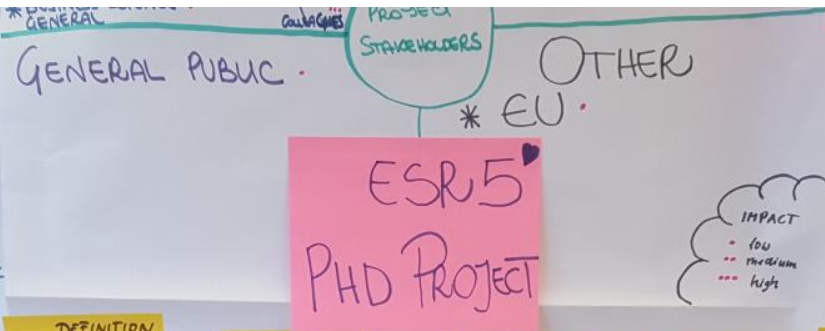 GENERAL
COLLEAGUES
PROJECT
STAKEHOLDERS
GENERAL PUBLIC
OTHER
* EU
ESR5
PHD PROJECT
IMPACT
low
medium
high
DEFINITION